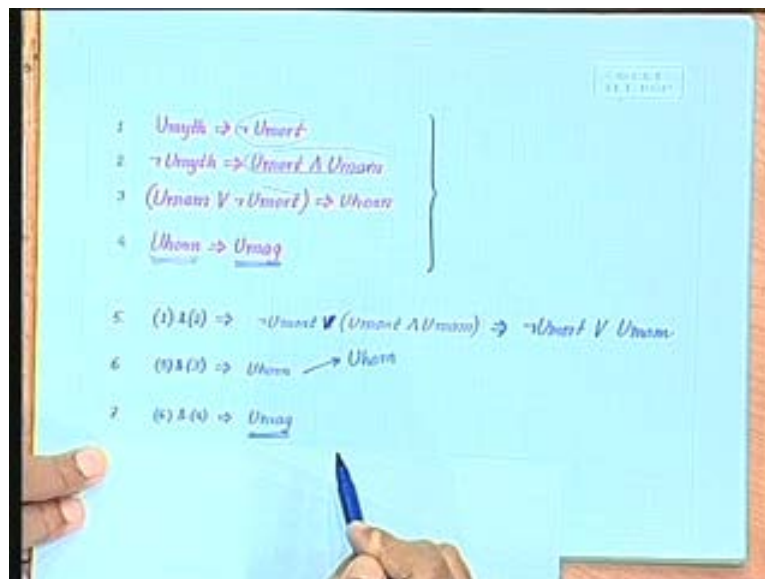 1 Umyth ⇒ ¬ Umort
2 ¬Umyth ⇒ (Umort ∧ Umam
3 (Umam V ¬Umort) ⇒ Uhorn
4 Uhorn ⇒ Umag
5 (1) & (2) ⇒ ¬Umort V (Umort ∧ Umam) ⇒ ¬Umort V Umam
6 (5) & (3) ⇒ Uhorn → Uhorn
7 (6) & (4) ⇒ Umag